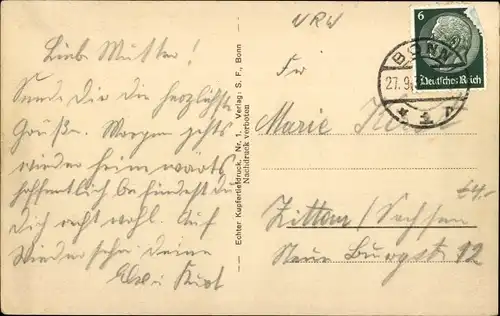 NRW
Liebe Mutter!
Sende Dir die herzlichsten
Grüße. Morgen gehts
wieder heimwärts
hoffentlich befindest du
Dich recht wohl. Auf
Wiedersehn Deine
Else u Kurt
Echter Kupfertiefdruck, Nr. 1. Verlag: S. F., Bonn
Nachdruck verboten
6
Deutsches Reich
BONN
27.9.3
Fr
Marie
£4.-
Zittau/Sachsen
Neue Burgstr 12